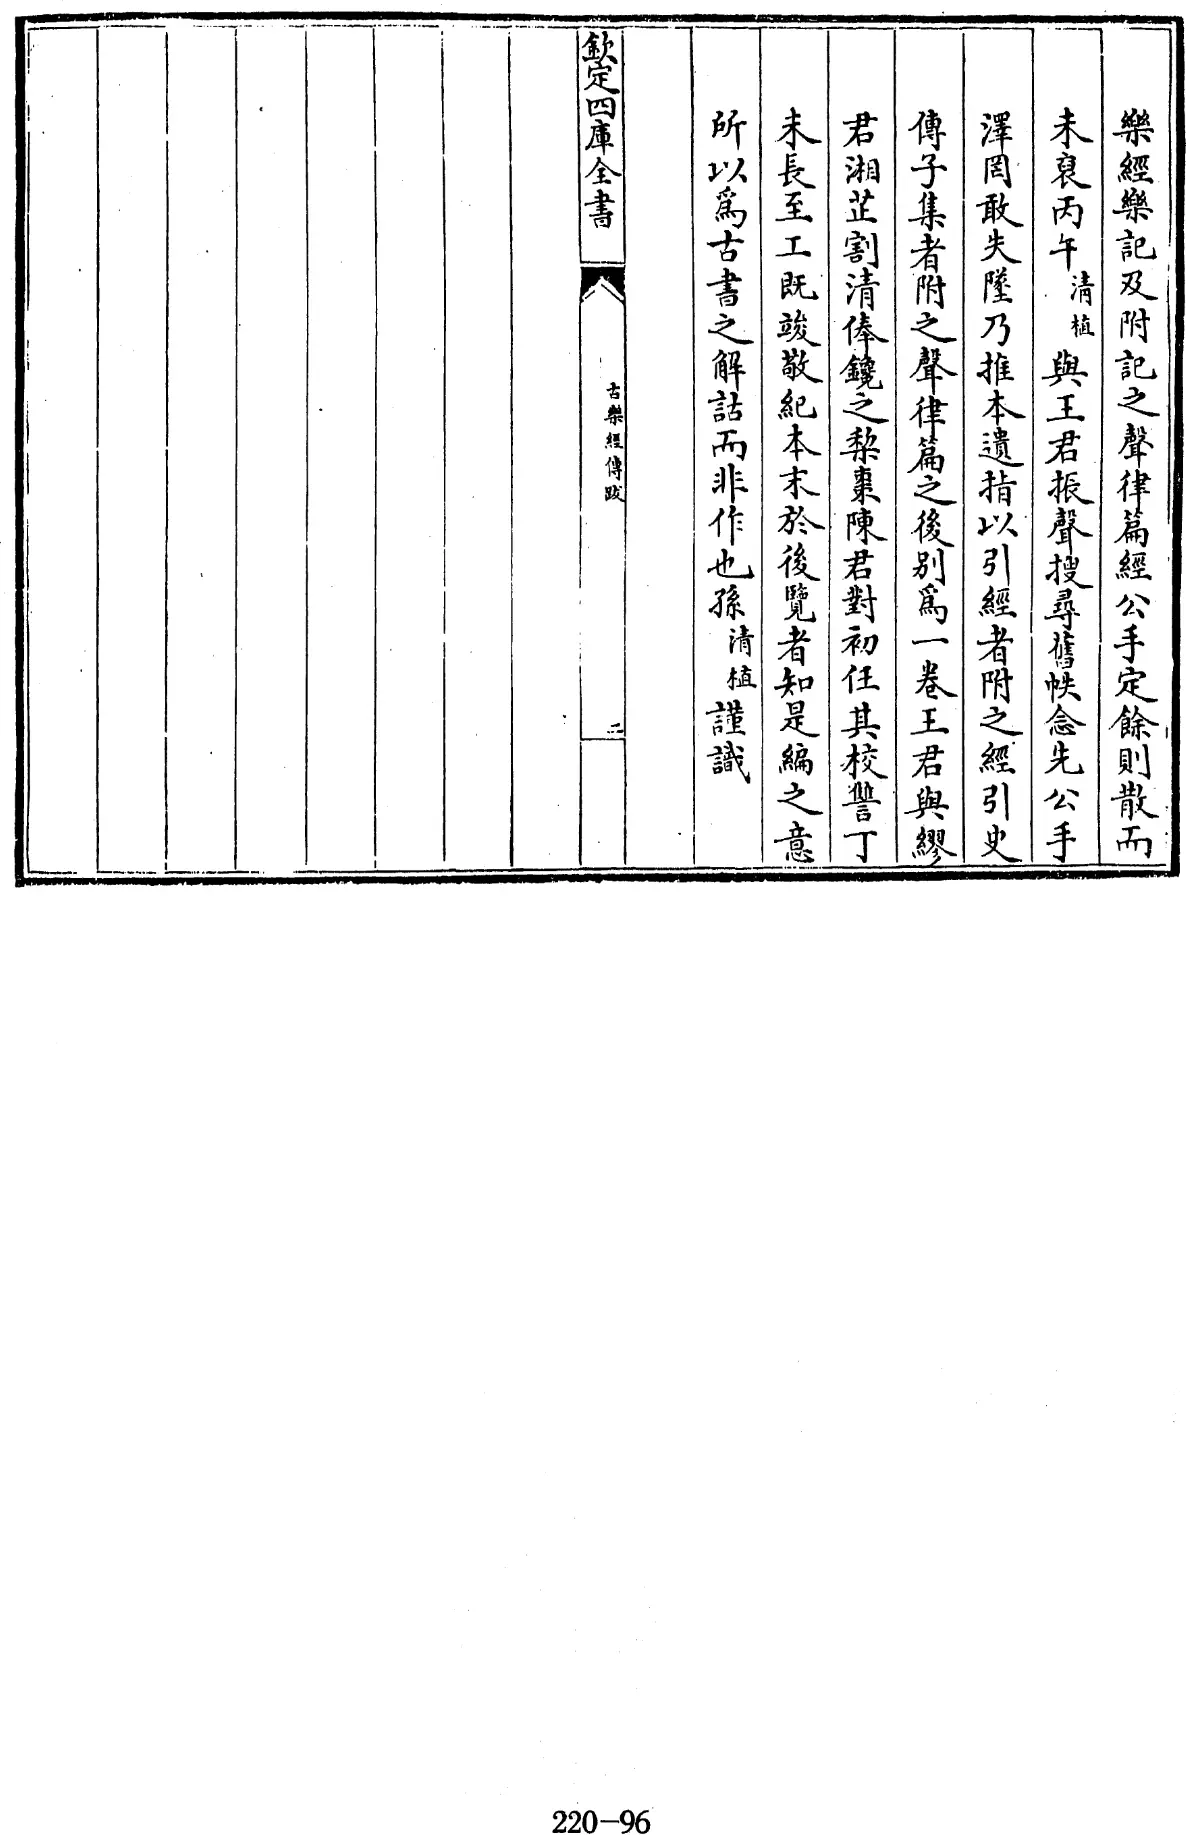 樂經樂記及附記之聲律篇經公手定餘則散而
未裒丙午清植與王君振聲搜尋舊帙念先公手
澤罔敢失墜乃推本遺指以引經者附之經引史
傳子集者附之聲律篇之後别爲一卷王君與繆
君湘芷割清俸鑱之棃棗陳君對初任其校讐丁
未長至工既竣敬紀本末於後覽者知是編之意
所以爲古書之解詁而非作也孫清植謹識
欽定四庫全書
古樂經傳跋
二
220-96